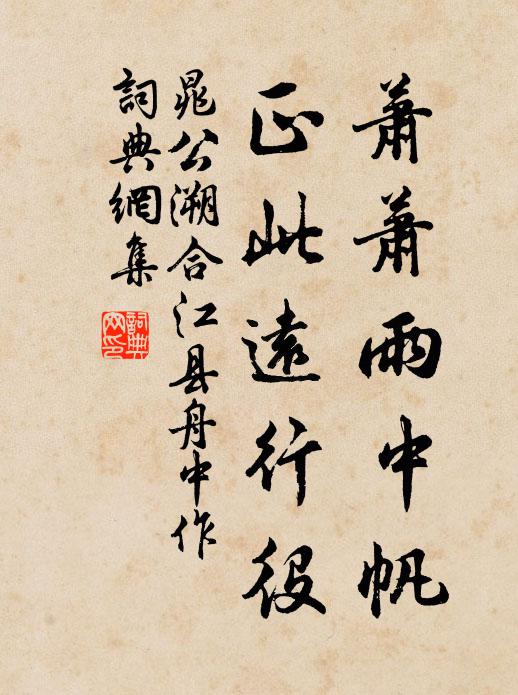 蕭蕭雨中帆
正此遠行役
晁公溯合江县舟中作
詞典網集
詞典網印